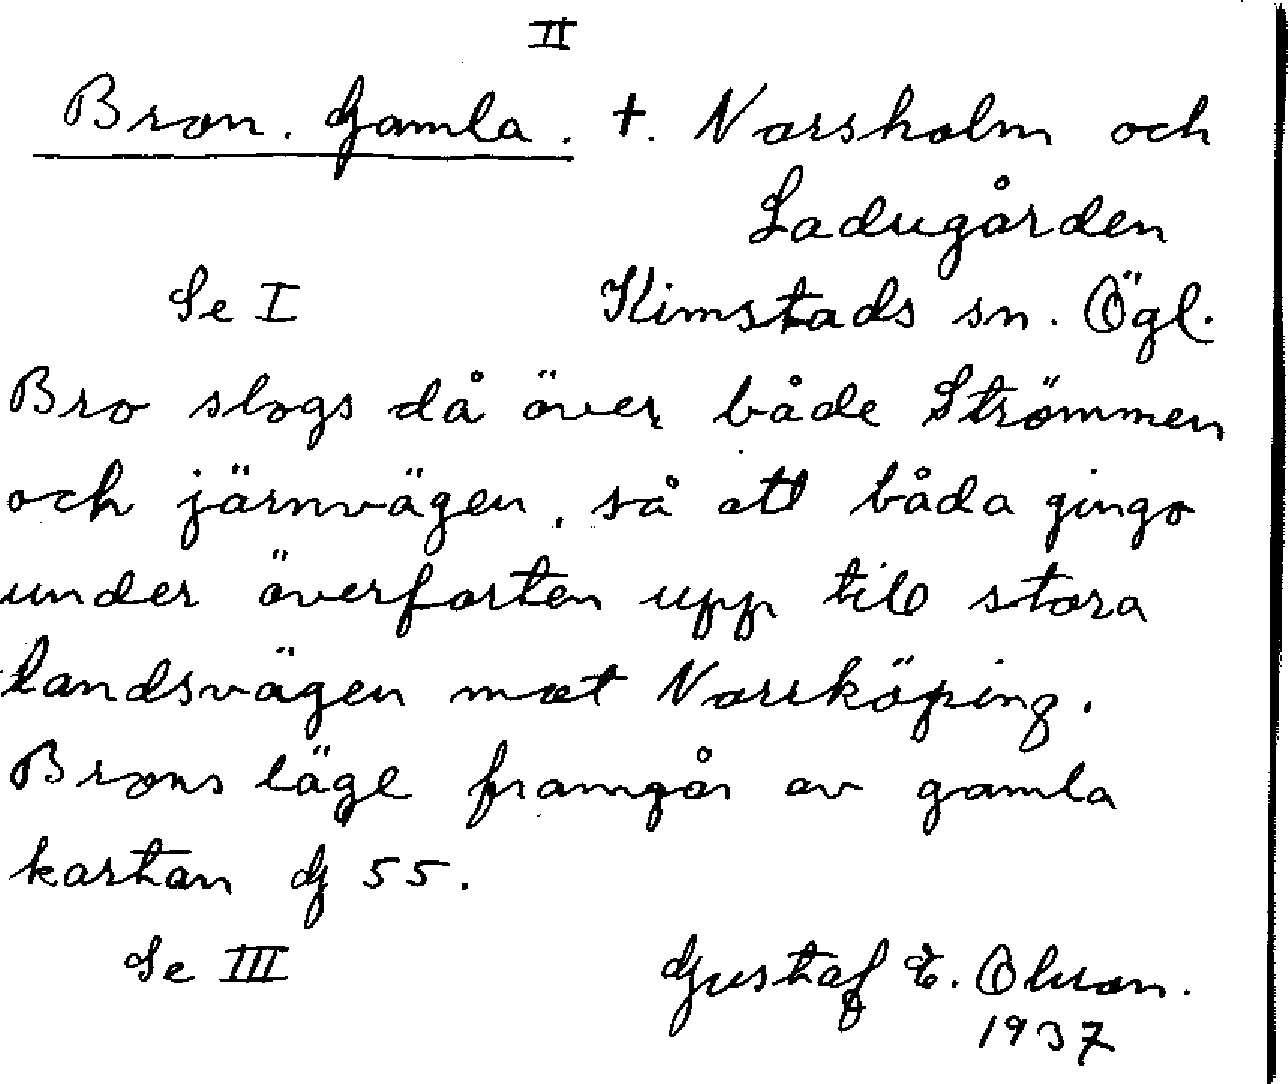 II
Bron. Gamla. †. Norsholm och
Ladugården
Se I Kimstads sn. Ögl.
Bro slogs då över både Strömmen
och järnvägen, så att båda gingo
under överfarten upp till stora
landsvägen mot Norrköping.
Brons läge framgår av gamla
kartan G 55.
Se III Gustaf E. Olsson.
1937